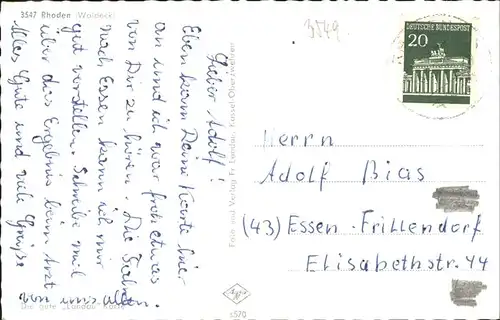 3547 Rhoden (Waldeck)
3549
Lieber Adolf!
Eben kam Deine Karte hier
an und ich war froh etwas
von Dir zu hören. Die Fahrt
nach Essen kann ich mir
gut vorstellen. Schreibe mir
über das Ergebnis beim Arzt
Alles Gute und viele Grüße
von uns allen.
Die gute "Landau" Karte
Foto und Verlag Fr. Landau, Kassel-Oberzwehren
DEUTSCHE BUNDESPOST
20
Herrn
Adolf Bias
(43) Essen-Frillendorf
Elisabethstr. 44
Agfa
5570